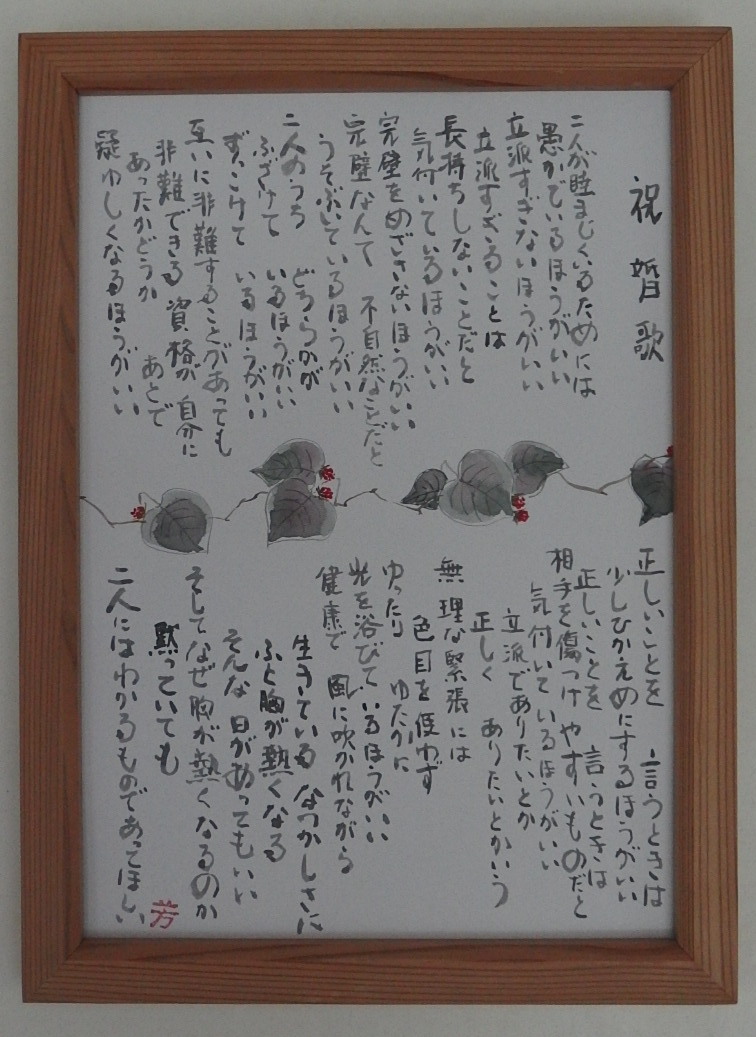 祝婚歌
二人が睦まじくいるためには
愚かでいるほうがいい
立派すぎないほうがいい
立派すぎることは
長持ちしないことだと
気付いているほうがいい
完璧をめざさないほうがいい
完璧なんて 不自然なことだと
うそぶいているほうがいい
二人のうち どちらかが
ふざけて いるほうがいい
ずっこけて いるほうがいい
互いに非難することがあっても
非難できる資格が自分に
あったかどうか あとで
疑わしくなるほうがいい
正しいことを 言うときは
少しひかえめにするほうがいい
正しいことを 言うときは
相手を傷つけやすいものだと
気付いているほうがいい
立派でありたいとか
正しく ありたいとかいう
無理な緊張には
色目を使わず
ゆったり ゆたかに
光を浴びているほうがいい
健康で 風に吹かれながら
生きている なつかしさに
ふと胸が熱くなる
そんな日があってもいい
そしてなぜ胸が熱くなるのか
黙っていても
二人にはわかるものであってほしい
芳